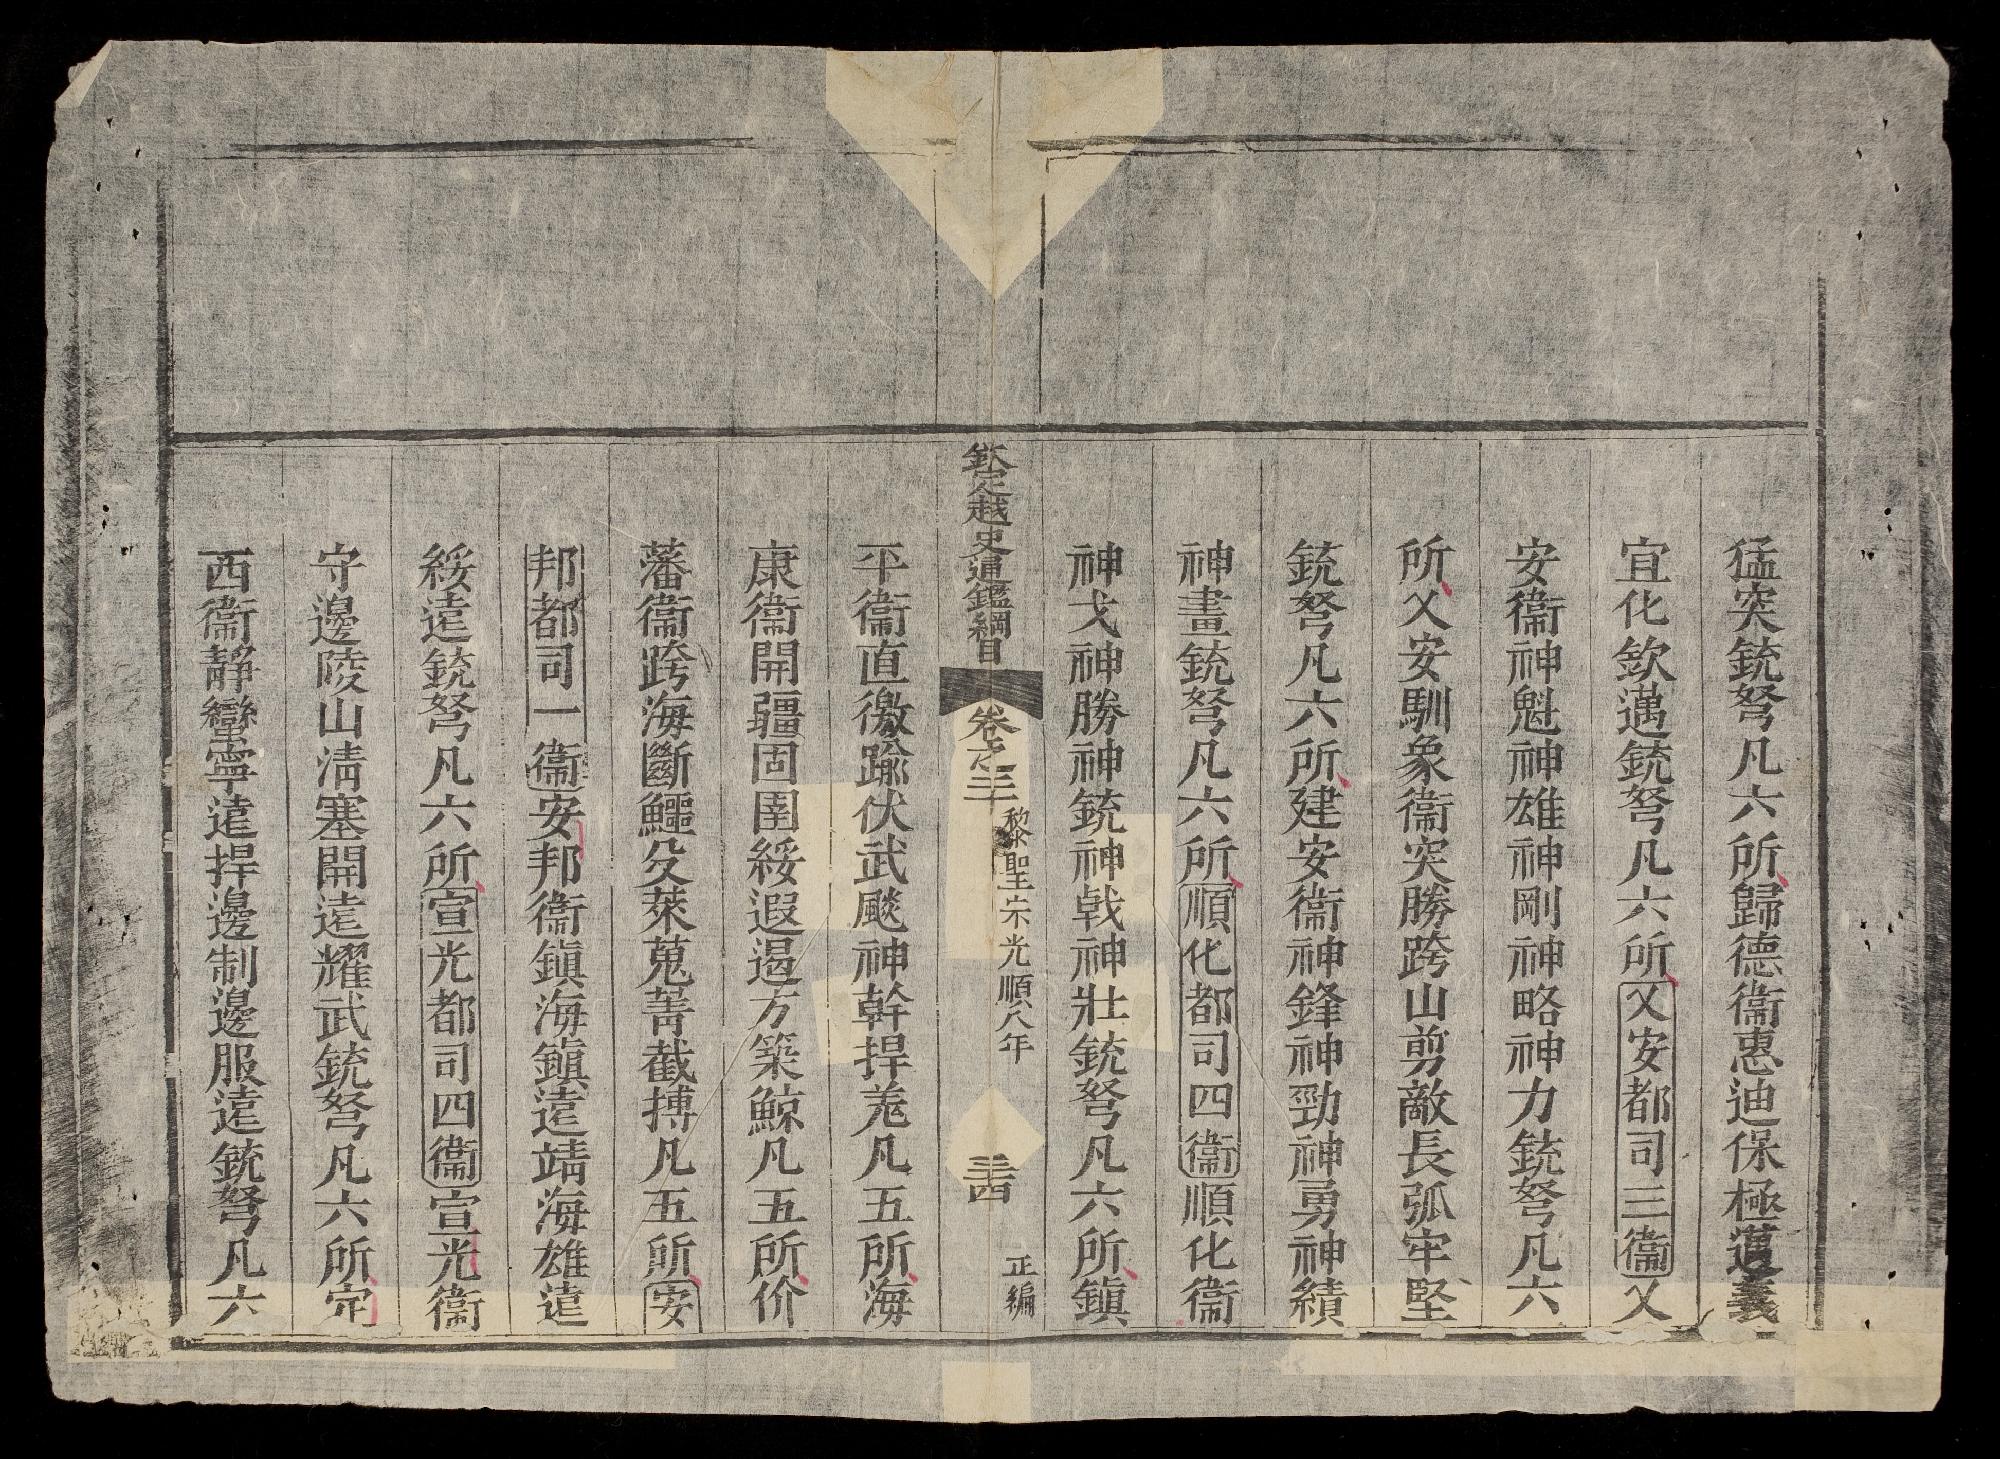 猛突銃弩凡六所歸德衞惠迪保極邁義
宜化欽邁銃弩凡六所乂安都司三衞乂
安衞神魁神雄神剛神略神力銃弩凡六
所乂安馴象衞突勝跨山剪敵長弧牢堅
銃弩凡六所建安衞神鋒神勁神勇神績
神畫銃弩凡六所順化都司四衞順化衞
神戈神勝神銃神戟神壯銃弩凡六所鎮
欽定越史通鑑綱目
卷之二十
黎聖宗光順八年
三四
正編
平衞直徼踰伏武颷神幹捍羗凡五所海
康衞開疆固圉綏遐遏方築鯨凡五所价
藩衞跨海斷鱷殳萊蒐菁截搏凡五所安
邦都司一衞安邦衞鎮海鎮遠靖海雄遠
綏遠銃弩凡六所宣光都司四衞宣光衞
守邊陵山清塞開遠耀武銃弩凡六所定
西衞靜蠻寧遠捍邊制邊服遠銃弩凡六